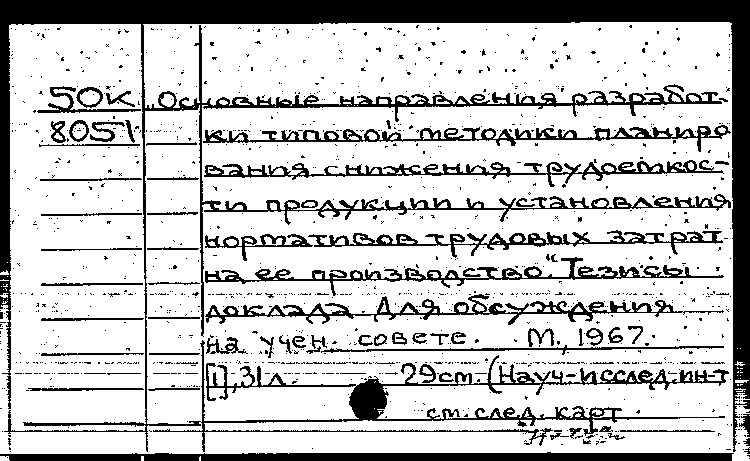 50К „Основные направления разработ-
8051 ки типовой методики планиро
вания снижения трудоемкос-
ти продукции и установления
нормативов трудовых затрат
на ее производство“. Тезисы
доклада. Для обсуждения
на учен. совете. М., 1967.
[1], 31 л. 29 см. (Науч-исслед. ин-т
см. след. карт